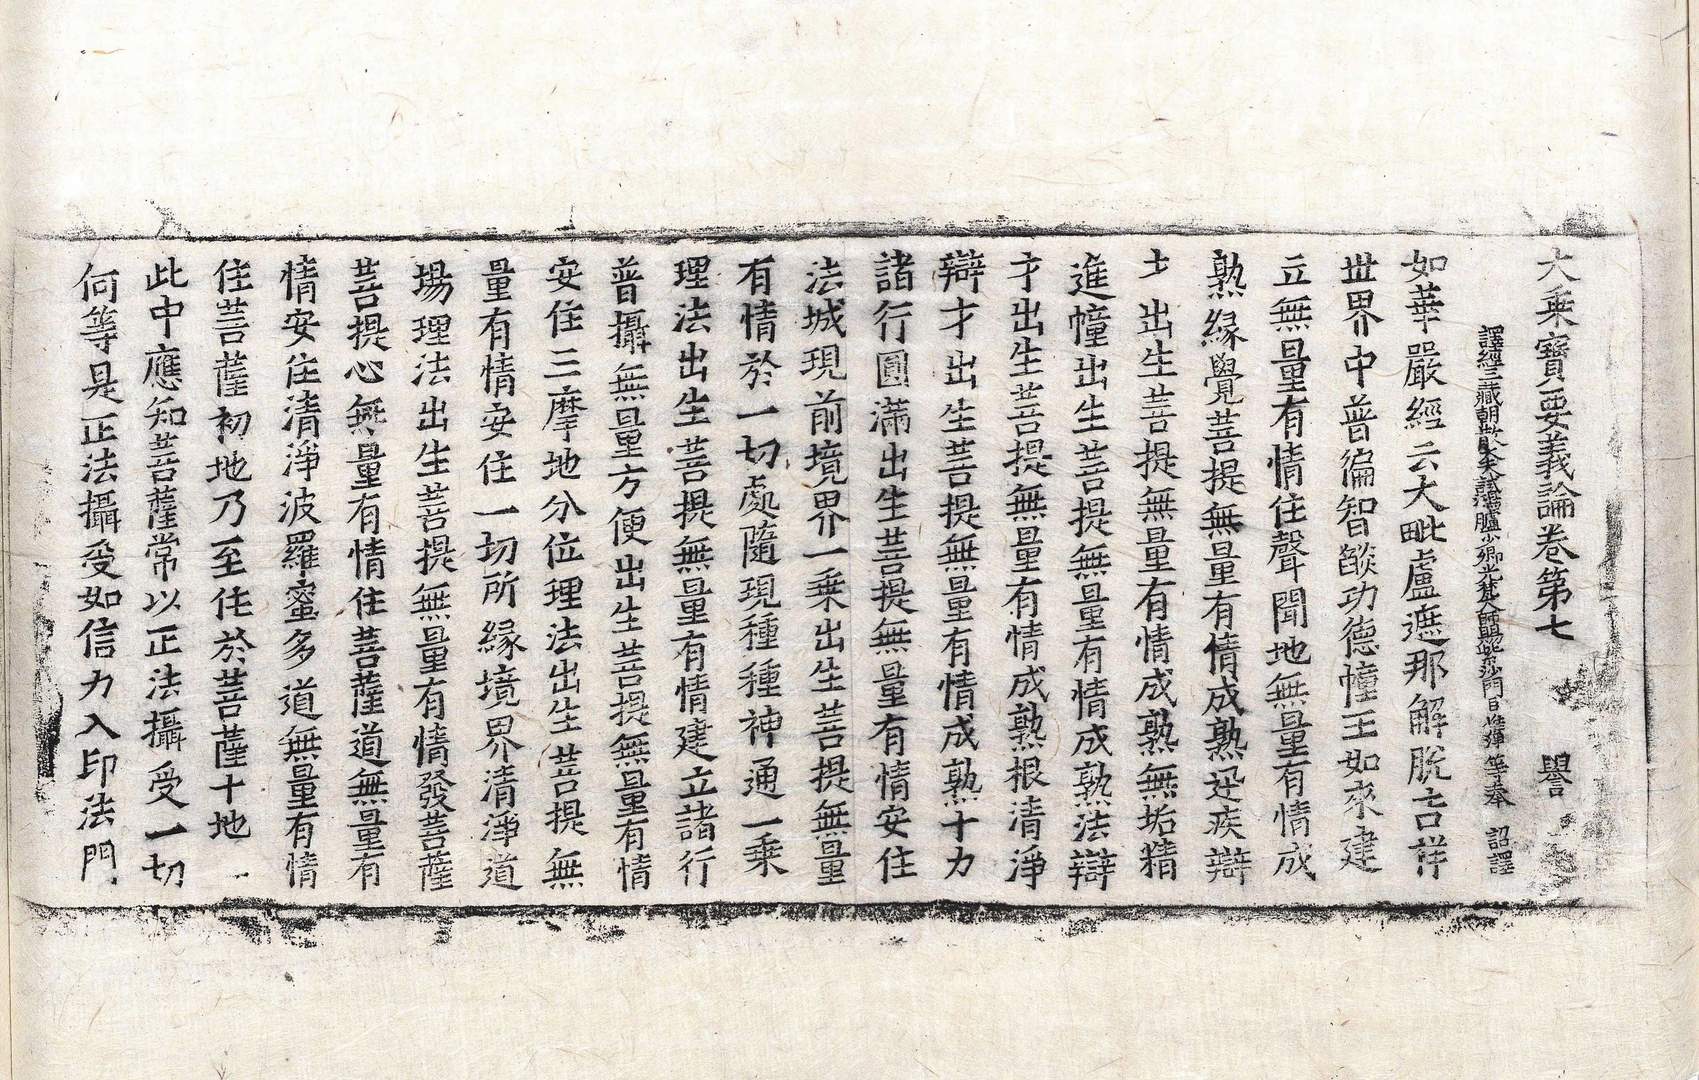 大乘寶要義論卷第七 譽
譯經三藏朝散大夫試鴻臚少卿光梵大師賜紫沙門臣惟淨等奉 詔譯
如華嚴經云大毗盧遮那解脫吉祥
世界中普徧智燄功德幢王如來建
立無量有情住聲聞地無量有情成
熟緣覺菩提無量有情成熟迅疾辯
才出生菩提無量有情成熟無垢精
進幢出生菩提無量有情成熟法辯
才出生菩提無量有情成熟根清淨
辯才出生菩提無量有情成熟十力
諸行圓滿出生菩提無量有情安住
法城現前境界一乘出生菩提無量
有情於一切處隨現種種神通一乘
理法出生菩提無量有情建立諸行
普攝無量方便出生菩提無量有情
安住三摩地分位理法出生菩提無
量有情安住一切所緣境界清淨道
場理法出生菩提無量有情發菩薩
菩提心無量有情住菩薩道無量有
情安住清淨波羅蜜多道無量有情
住菩薩初地乃至住於菩薩十地
此中應知菩薩常以正法攝受一切
何等是正法攝受如信力入印法門